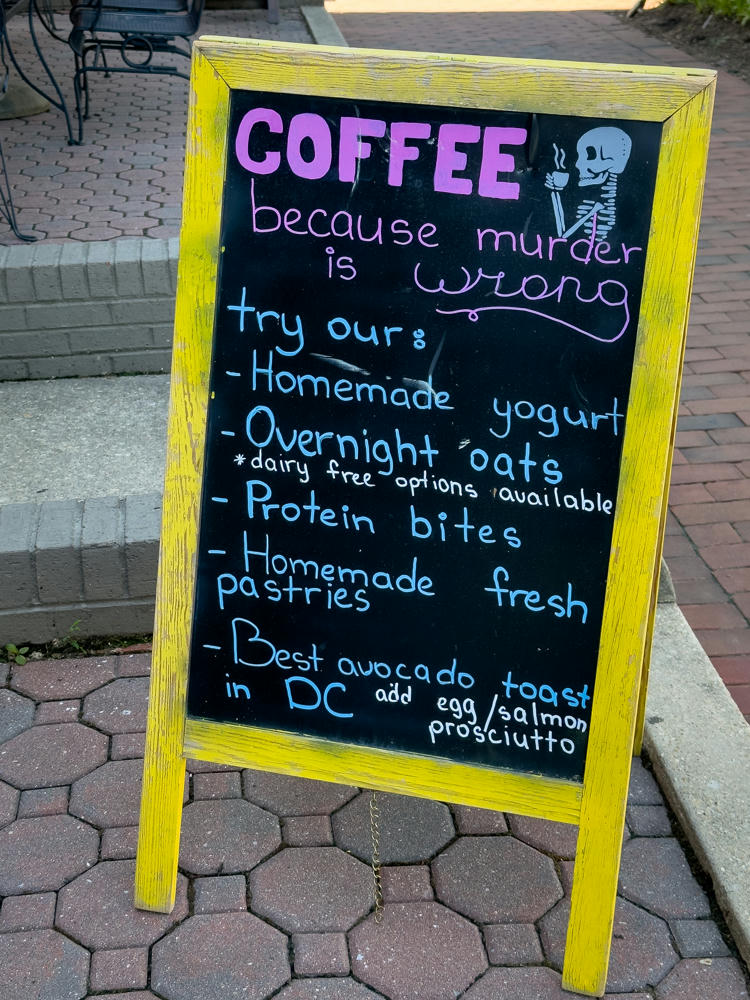 COFFEE
because murder
is wrong
try our:
- Homemade yogurt
- Overnight oats
*dairy free options available
- Protein bites
- Homemade fresh
pastries
- Best avocado toast
in DC add egg/salmon
prosciutto